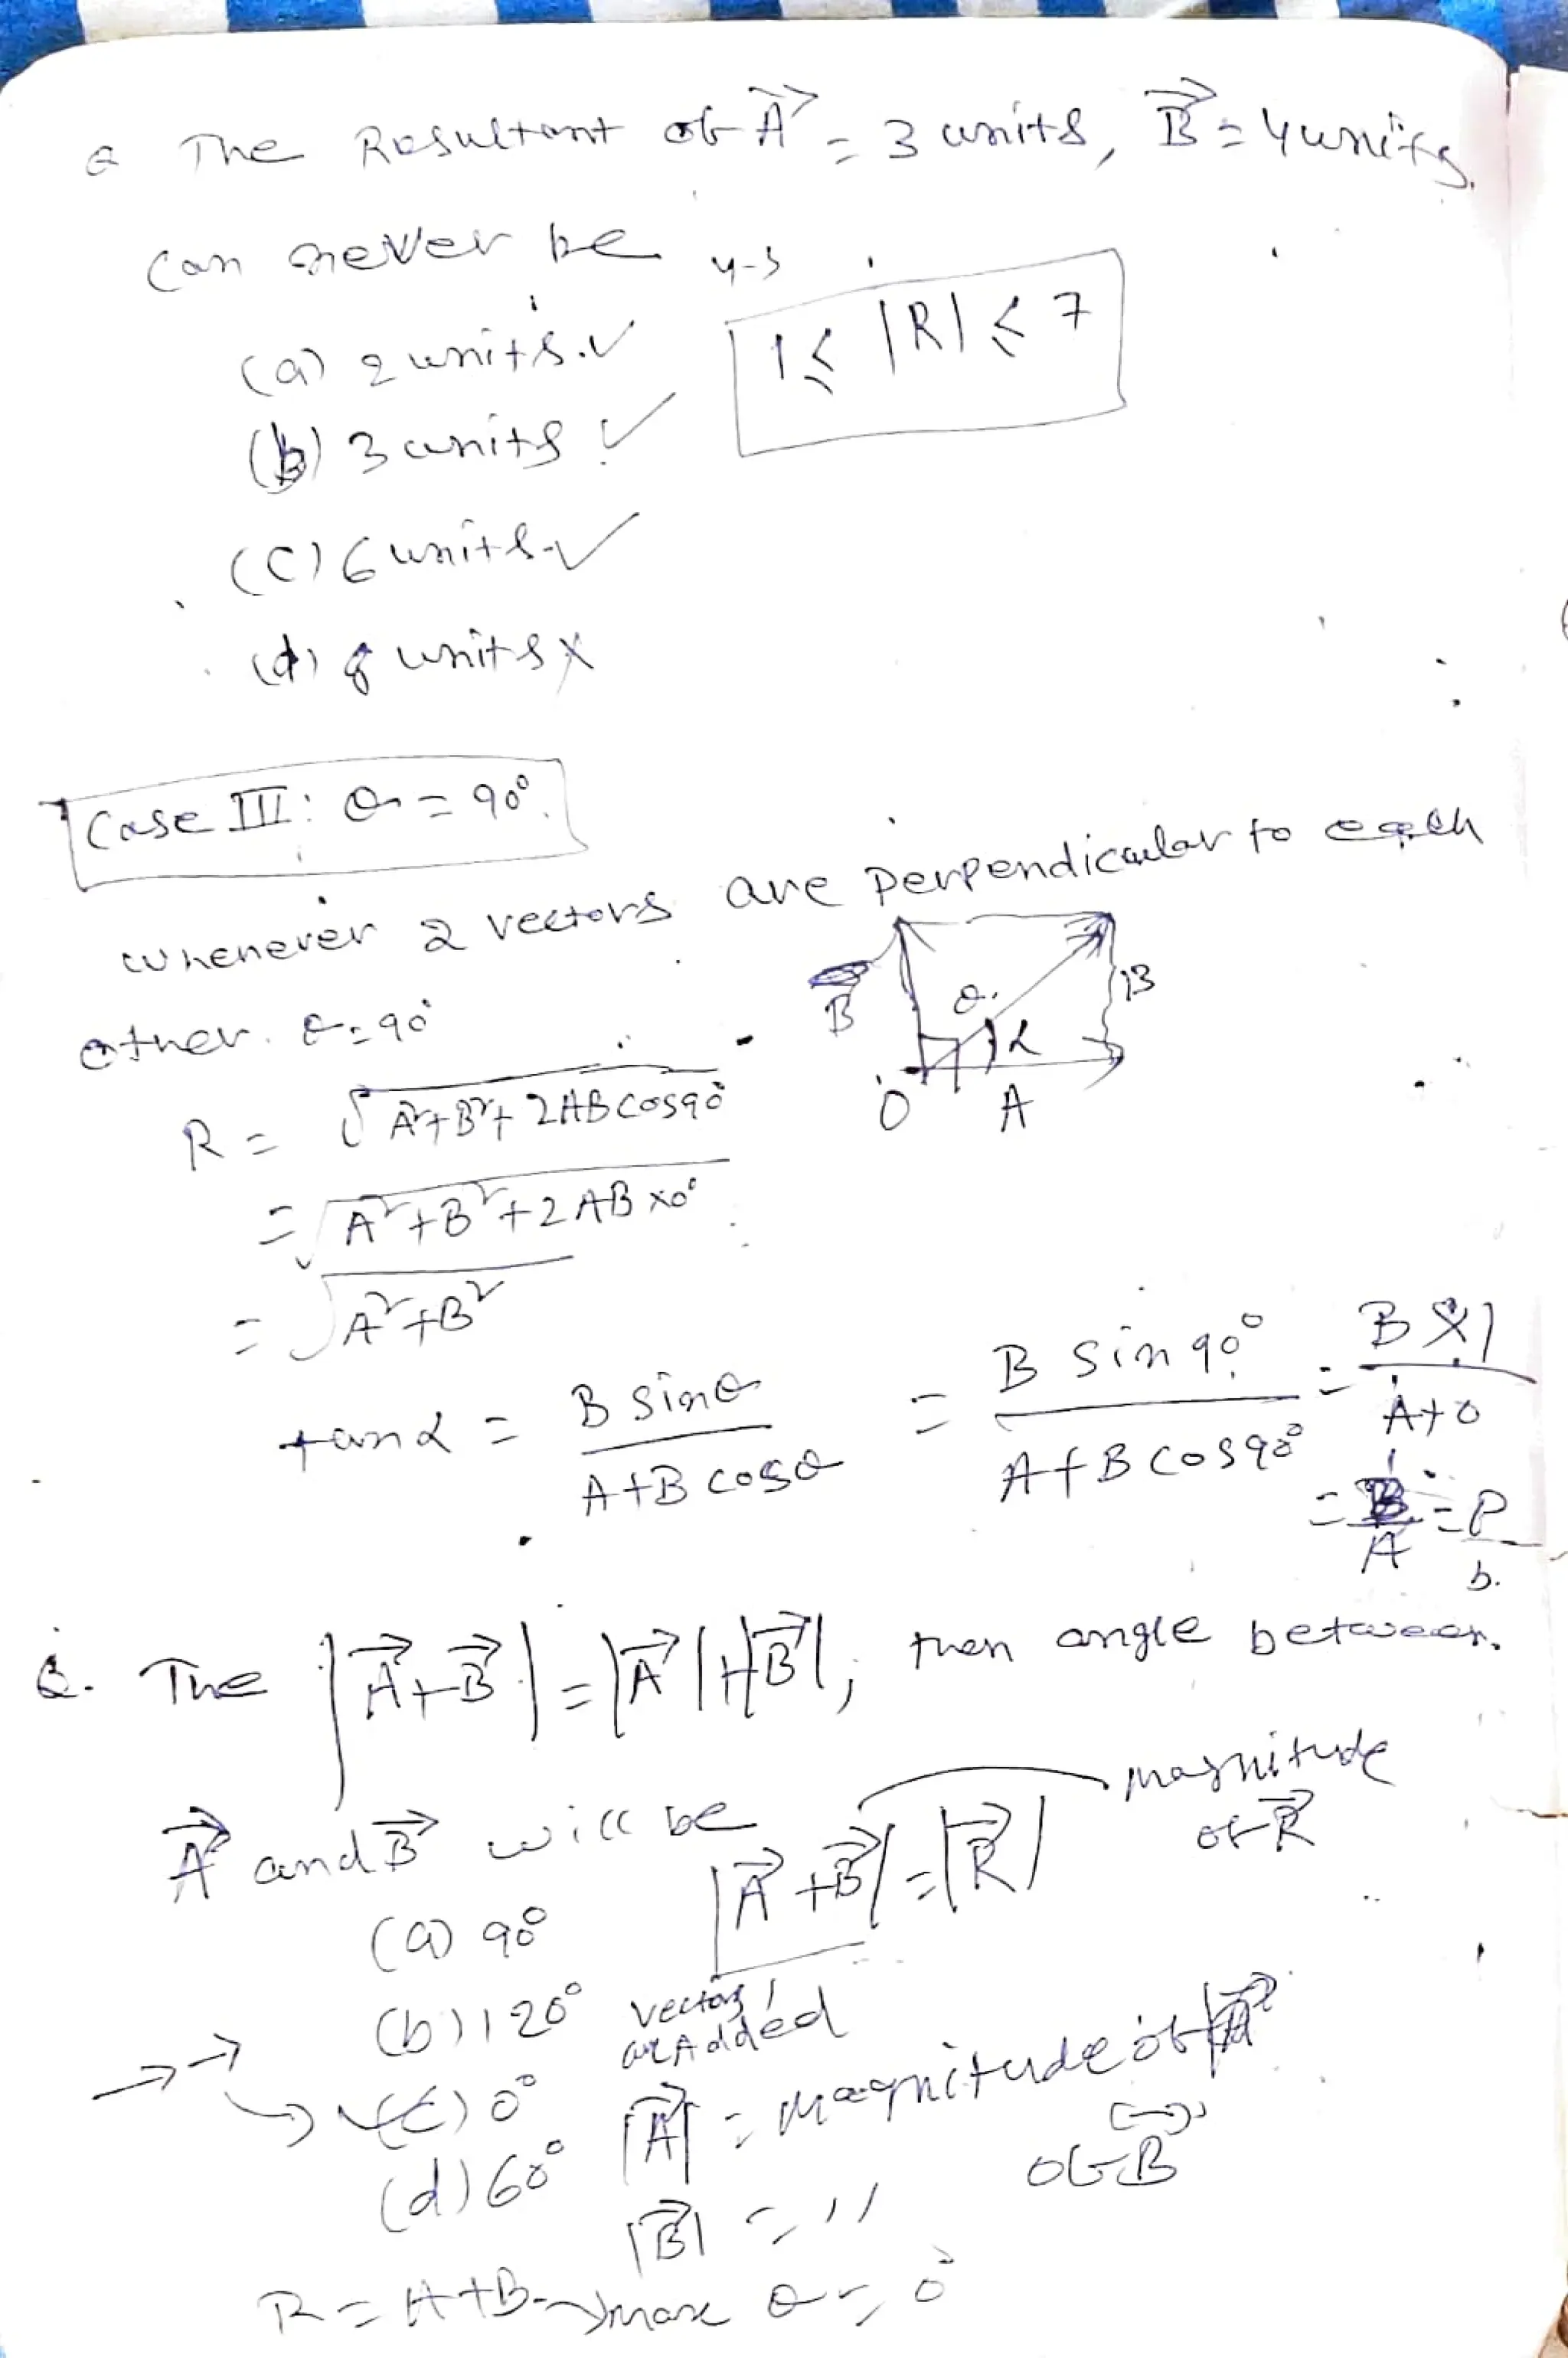 Q The Resultant of A⃗ = 3 units, B⃗ = 4 units.
can never be
4-3
(a) 2 units. ✓
1 ≤ |R| ≤ 7
(b) 3 units ✓
(c) 6 units ✓
(d) 8 units ×
Case III: θ = 90°.
whenever 2 vectors are perpendicular to each
other. θ = 90°
B θ. α B
O A
R = √A²+B²+2AB cos90°
= √A²+B²+2AB×0
= √A²+B²
tanα = B sinθ / A+B cosθ = B sin90° / A+B cos90° = B×1 / A+0
= B/A = P/b.
Q. The |A⃗+B⃗| = |A⃗|+|B⃗|, then angle between
A⃗ and B⃗ will be
|A⃗+B⃗| = |R⃗| magnitude of R⃗
vectors are Added
(a) 90°
(b) 120°
(c) 0°
(d) 60°
|A⃗| = magnitude of |A⃗|
|B⃗| = 11 of B⃗
R = A+B → max θ = 0°